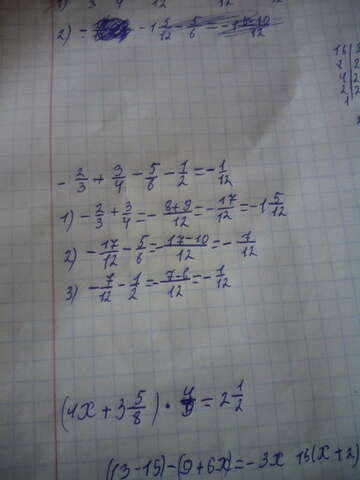 2) = - 1 5/12 - 5/6 = -
- 2/3 + 3/4 - 5/6 - 1/2 = - 1/12
1) - 2/3 + 3/4 = - 8+9/12 = - 17/12 = - 1 5/12
2) - 17/12 - 5/6 = - 17-10/12 = - 7/12
3) - 7/12 - 1/2 = - 7-6/12 = - 1/12
(4x + 3 5/8) · = 2 1/2
(13-15)-(9+6x)=-3x 15(x+2)